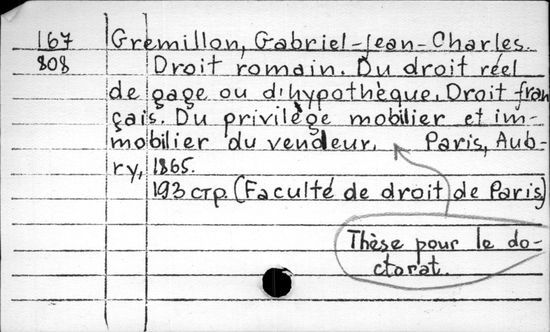 167 Gremillon, Gabriel-Jean-Charles.
808 Droit romain. Du droit réel
de gage ou d'hypothèque. Droit fran
çais. Du privilège mobilier et im-
mobilier du vendeur. Paris, Aub-
ry, 1865.
193 стр. (Faculté de droit de Paris)
Thèse pour le do-
ctorat.